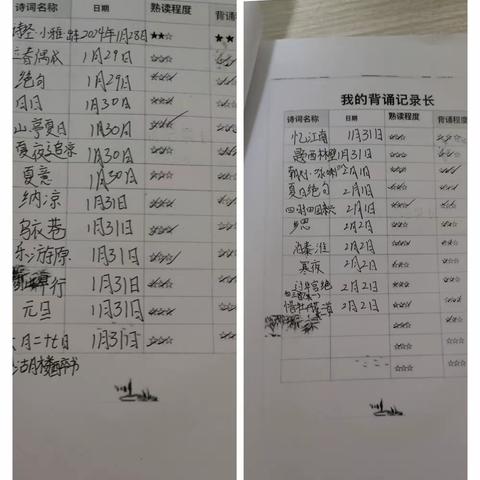 诗词名称 日期 熟读程度 背诵
诗经·小雅 2024年1月28日 ★★☆ ★★
立春偶成 1月29日 ☆☆☆
绝句 1月29日 ☆☆☆
日日 1月30日 ☆☆☆
山亭夏日 1月30日 ☆☆☆
夏夜追凉 1月30日 ☆☆☆
夏意 1月30日 ☆☆☆
纳凉 1月31日 ☆☆☆
乌衣巷 1月31日 ☆☆☆
乐游原 1月31日 ☆☆☆
行 1月31日 ☆☆☆
元旦 1月31日 ☆☆☆
月二十七日 1月31日 ☆☆☆
湖楼醉书
我的背诵记录长
诗词名称 日期 熟读程度 背诵程度
忆江南 1月31日 ☆☆☆ ☆☆☆
题西林壁 1月31日 ☆☆☆ ☆☆☆
2月1日 ☆☆☆ ☆☆☆
夏日绝句 2月1日 ☆☆☆ ☆☆☆
四时田园 2月1日 ☆☆☆ ☆☆☆
乡思 2月2日 ☆☆☆ ☆☆☆
泊秦淮 2月2日 ☆☆☆ ☆☆☆
寒夜 2月2日 ☆☆☆ ☆☆☆
过华清宫绝 2月2日 ☆☆☆ ☆☆☆
2月2日 ☆☆☆ ☆☆☆
☆☆☆ ☆☆☆
☆☆☆ ☆☆☆
☆☆☆ ☆☆☆